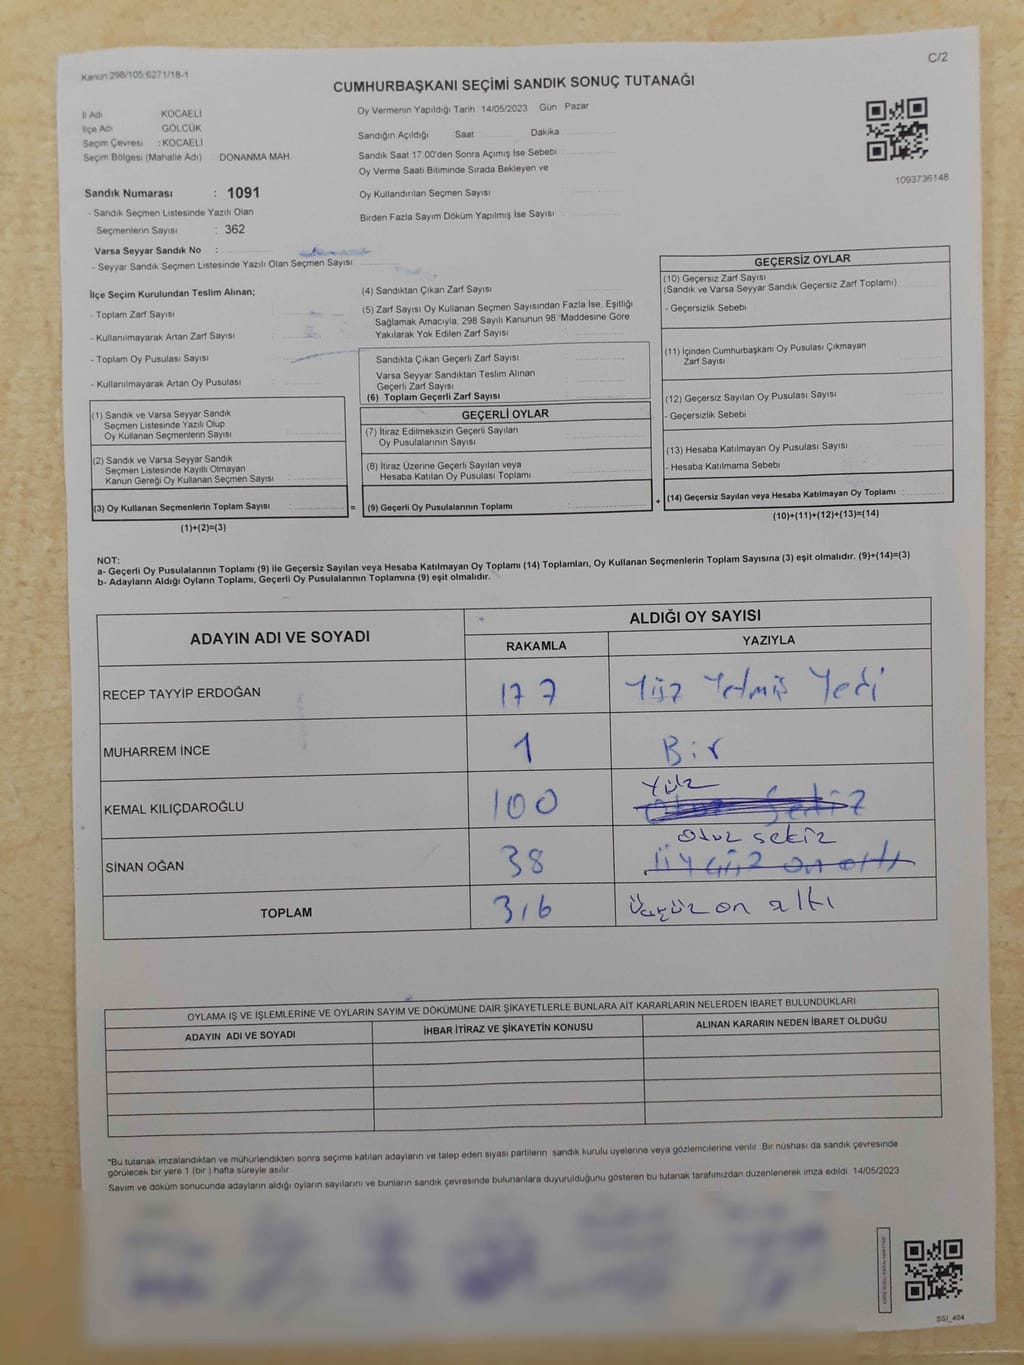 Kanun 298/105:6271/18-1
C/2
CUMHURBAŞKANI SEÇİMİ SANDIK SONUÇ TUTANAĞI
İl Adı KOCAELİ
İlçe Adı GÖLCÜK
Seçim Çevresi : KOCAELİ
Seçim Bölgesi (Mahalle Adı) DONANMA MAH.
Oy Vermenin Yapıldığı Tarih 14/05/2023 Gün Pazar
Sandığın Açıldığı Saat Dakika
Sandık Saat 17:00'den Sonra Açımış İse Sebebi :
Oy Verme Saati Bitiminde Sırada Bekleyen ve
Oy Kullandırılan Seçmen Sayısı
Birden Fazla Sayım Döküm Yapılmış İse Sayısı
1093736148
Sandık Numarası : 1091
- Sandık Seçmen Listesinde Yazılı Olan
Seçmenlerin Sayısı : 362
Varsa Seyyar Sandık No :
- Seyyar Sandık Seçmen Listesinde Yazılı Olan Seçmen Sayısı
İlçe Seçim Kurulundan Teslim Alınan;
- Toplam Zarf Sayısı
- Kullanılmayarak Artan Zarf Sayısı
- Toplam Oy Pusulası Sayısı
- Kullanılmayarak Artan Oy Pusulası
(1) Sandık ve Varsa Seyyar Sandık
Seçmen Listesinde Yazılı Olup
Oy Kullanan Seçmenlerin Sayısı
(2) Sandık ve Varsa Seyyar Sandık
Seçmen Listesinde Kayıtlı Olmayan
Kanun Gereği Oy Kullanan Seçmen Sayısı
(3) Oy Kullanan Seçmenlerin Toplam Sayısı :
(1)+(2)=(3)
=
(4) Sandıktan Çıkan Zarf Sayısı
(5) Zarf Sayısı Oy Kullanan Seçmen Sayısından Fazla İse, Eşitliği
Sağlamak Amacıyla, 298 Sayılı Kanunun 98. Maddesine Göre
Yakılarak Yok Edilen Zarf Sayısı
Sandıkta Çıkan Geçerli Zarf Sayısı
Varsa Seyyar Sandıktan Teslim Alınan
Geçerli Zarf Sayısı
(6) Toplam Geçerli Zarf Sayısı
GEÇERLİ OYLAR
(7) İtiraz Edilmeksizin Geçerli Sayılan
Oy Pusulalarının Sayısı
(8) İtiraz Üzerine Geçerli Sayılan veya
Hesaba Katılan Oy Pusulası Toplamı
(9) Geçerli Oy Pusulalarının Toplamı :
+
GEÇERSİZ OYLAR
(10) Geçersiz Zarf Sayısı
(Sandık ve Varsa Seyyar Sandık Geçersiz Zarf Toplamı)
- Geçersizlik Sebebi
(11) İçinden Cumhurbaşkanı Oy Pusulası Çıkmayan
Zarf Sayısı
(12) Geçersiz Sayılan Oy Pusulası Sayısı
- Geçersizlik Sebebi
(13) Hesaba Katılmayan Oy Pusulası Sayısı
- Hesaba Katılmama Sebebi
(14) Geçersiz Sayılan veya Hesaba Katılmayan Oy Toplamı :
(10)+(11)+(12)+(13)=(14)
NOT:
a- Geçerli Oy Pusulalarının Toplamı (9) ile Geçersiz Sayılan veya Hesaba Katılmayan Oy Toplamı (14) Toplamları, Oy Kullanan Seçmenlerin Toplam Sayısına (3) eşit olmalıdır. (9)+(14)=(3)
b- Adayların Aldığı Oyların Toplamı, Geçerli Oy Pusulalarının Toplamına (9) eşit olmalıdır.
ADAYIN ADI VE SOYADI
ALDIĞI OY SAYISI
RAKAMLA YAZIYLA
RECEP TAYYİP ERDOĞAN 177 Yüz Yetmiş Yedi
MUHARREM İNCE 1 Bir
KEMAL KILIÇDAROĞLU 100 Yüz
Otuz Sekiz
SİNAN OĞAN 38 Otuz sekiz
Üçyüz on altı
TOPLAM 316 Üçyüz on altı
OYLAMA İŞ VE İŞLEMLERİNE VE OYLARIN SAYIM VE DÖKÜMÜNE DAİR ŞİKAYETLERLE BUNLARA AİT KARARLARIN NELERDEN İBARET BULUNDUKLARI
ADAYIN ADI VE SOYADI İHBAR İTİRAZ VE ŞİKAYETİN KONUSU ALINAN KARARIN NEDEN İBARET OLDUĞU
*Bu tutanak imzalandıktan ve mühürlendikten sonra seçime katılan adayların ve talep eden siyasi partilerin sandık kurulu üyelerine veya gözlemcilerine verilir. Bir nüshası da sandık çevresinde
görülecek bir yere 1 (bir ) hafta süreyle asılır.
Sayım ve döküm sonucunda adayların aldığı oyların sayılarını ve bunların sandık çevresinde bulunanlara duyurulduğunu gösteren bu tutanak tarafımızdan düzenlenerek imza edildi. 14/05/2023
SSI_404